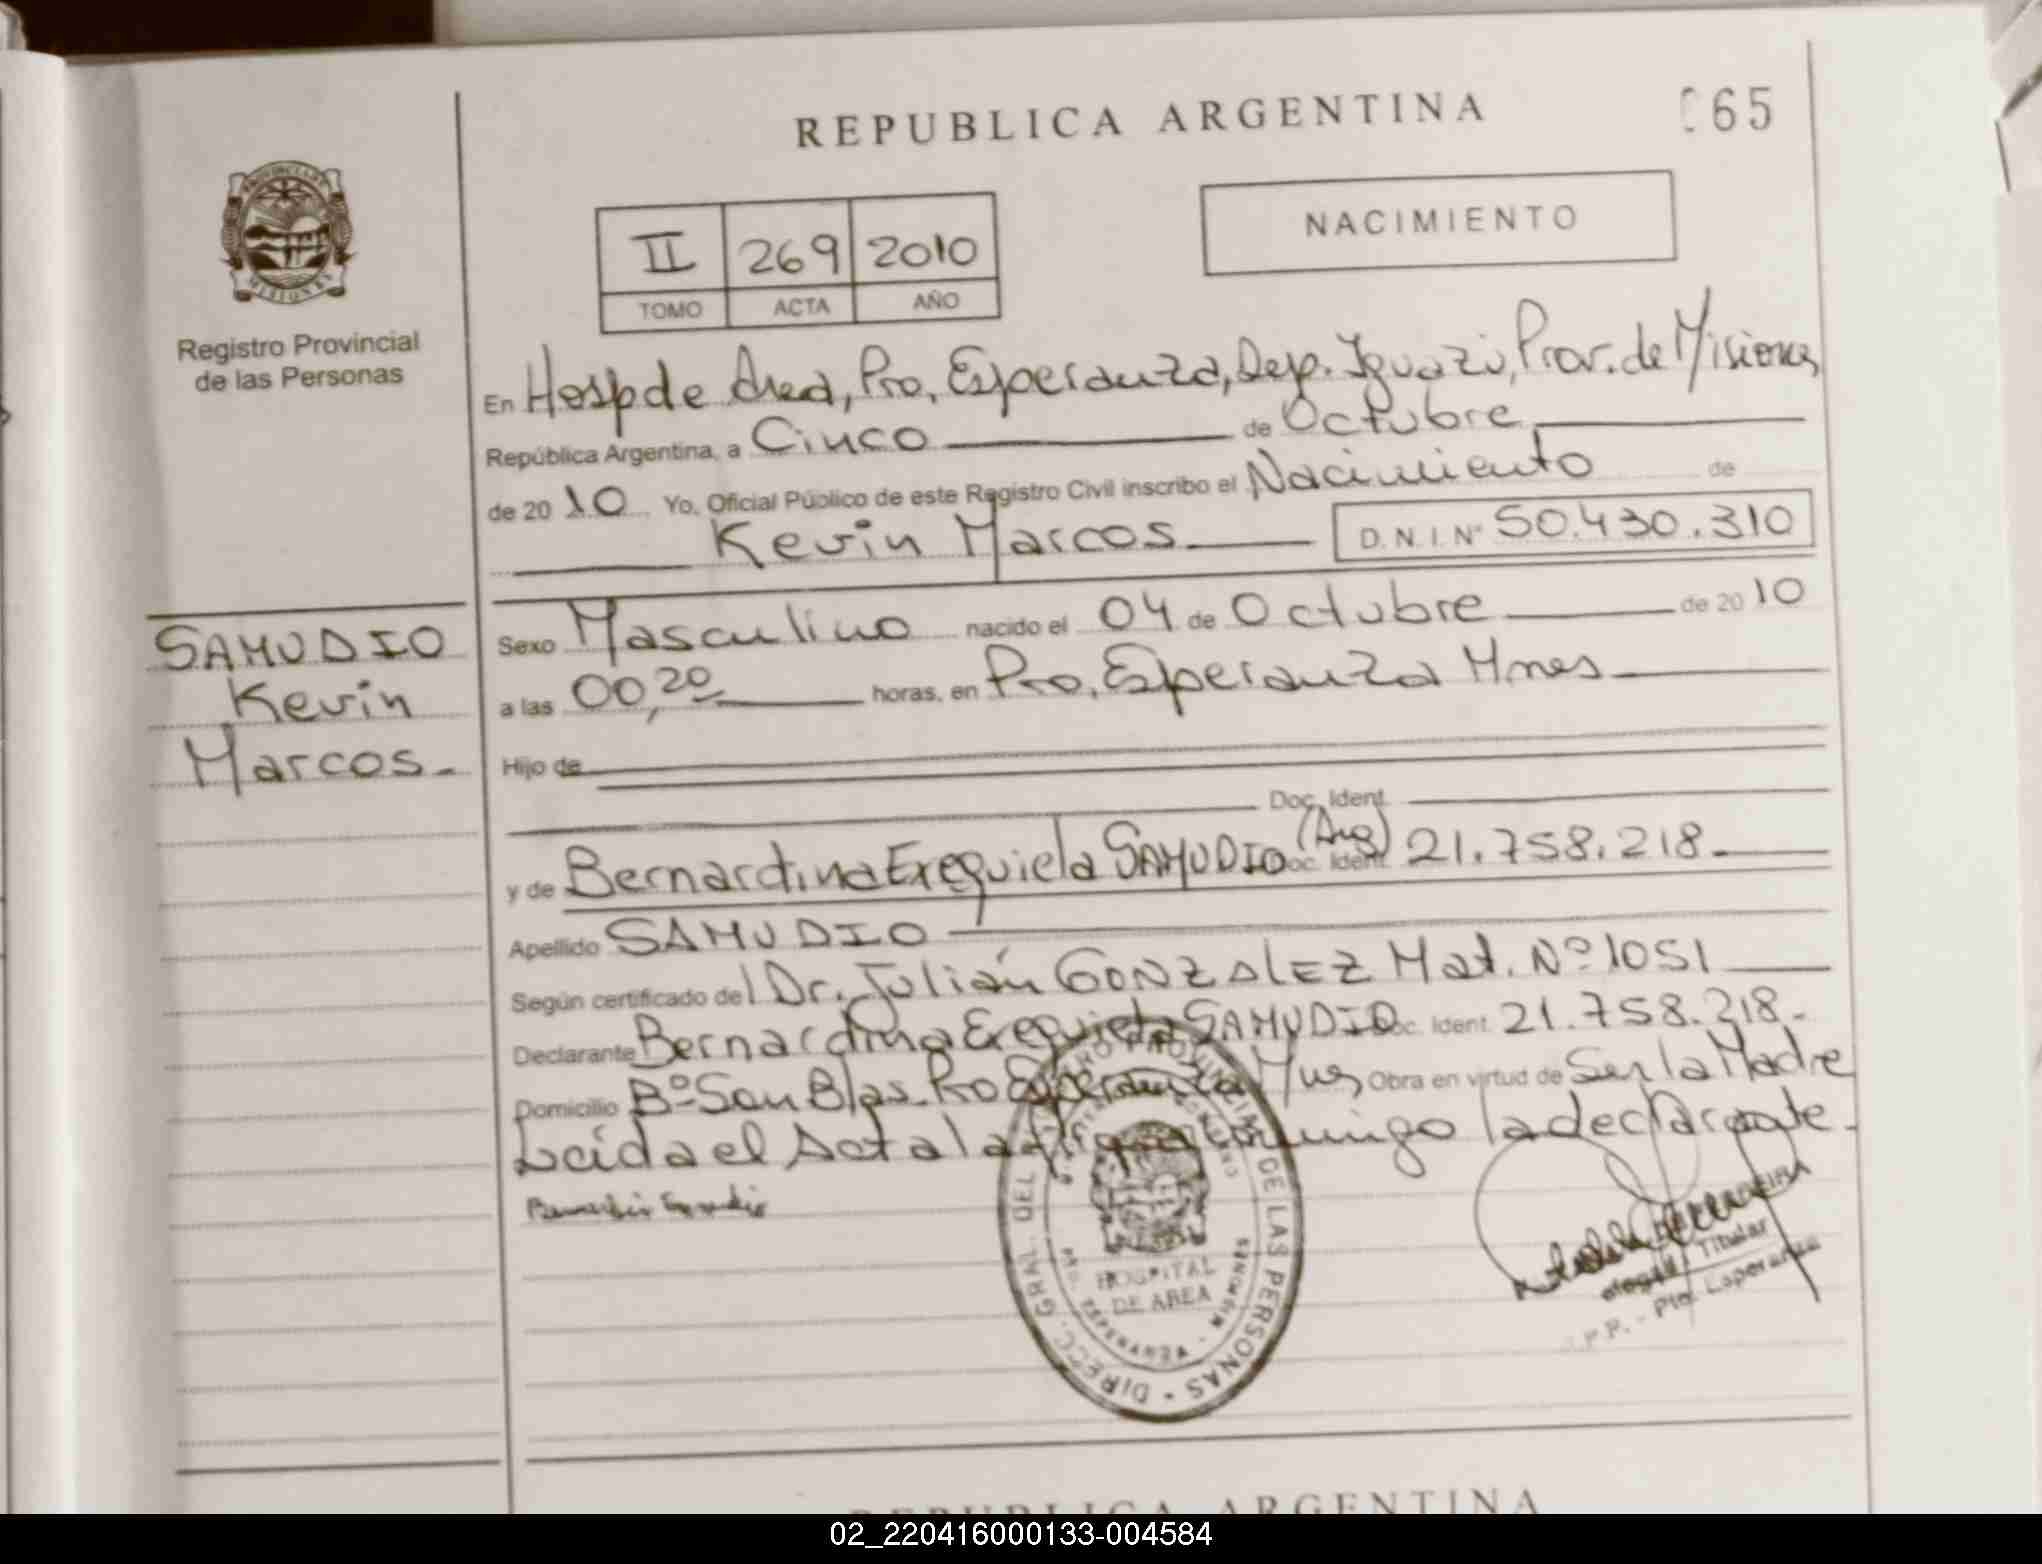 REPUBLICA ARGENTINA
065
PROVINCIA DE
MISIONES
Registro Provincial
de las Personas
II 269 2010
TOMO ACTA AÑO
NACIMIENTO
En Hosp de Area, Pto, Esperanza, Dep. Iguazú, Prov. de Misiones
República Argentina, a Cinco de Octubre
de 2010 Yo, Oficial Público de este Registro Civil inscribo el Nacimiento de
Kevin Marcos D.N.I. Nº 50.430.310
SAMUDIO
Kevin
Marcos.-
Sexo Masculino nacido el 04 de Octubre de 2010
a las 00,20 horas, en Pto. Esperanza Mnes
Hijo de
Doc. Ident.
y de Bernardina Exequiela SAMUDIO (Arg) Doc. Ident. 21.758.218.
Apellido SAMUDIO
Según certificado del Dr. Julián GONZALEZ Mat. Nº 1051
Declarante Bernardina Exequiela SAMUDIO Doc. Ident. 21.758.218.-
Domicilio Bº San Blas Pto Esperanza Mnes Obra en virtud de Ser la Madre
Leída el Acta la firma conmigo la declarante.
DIRECC. GRAL. DEL REGISTRO PROVINCIAL DE LAS PERSONAS
HOSPITAL
DE AREA
PTO. ESPERANZA - MISIONES
Titular
Pto. Esperanza
REPUBLICA ARGENTINA
02_220416000133-004584